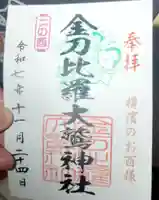 奉拝
横濱のお酉様
二の酉
金刀比羅大鷲神社
令和七年十一月二十四日